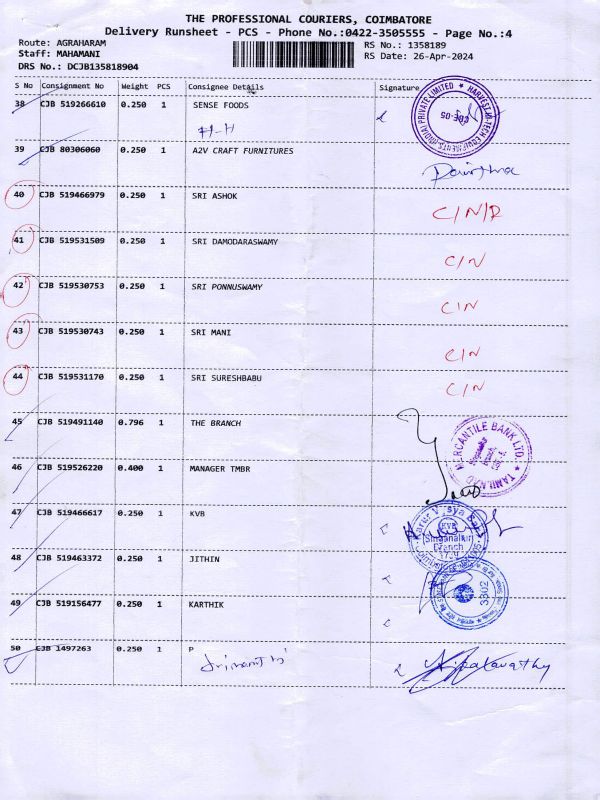 THE PROFESSIONAL COURIERS, COIMBATORE
Delivery Runsheet - PCS - Phone No.:0422-3505555 - Page No.:4
Route: AGRAHARAM RS No.: 1358189
Staff: MAHAMANI RS Date: 26-Apr-2024
DRS No.: DCJB135818904
S No Consignment No Weight PCS Consignee Details Signature
38 CJB 519266610 0.250 1 SENSE FOODS
H-H
HARVEST HI-TECH EQUIPMENTS (INDIA) PRIVATE LIMITED
CBE-05
39 CJB 80306060 0.250 1 A2V CRAFT FURNITURES
40 CJB 519466979 0.250 1 SRI ASHOK C/N/R
41 CJB 519531509 0.250 1 SRI DAMODARASWAMY C/N
42 CJB 519530753 0.250 1 SRI PONNUSWAMY C/N
43 CJB 519530743 0.250 1 SRI MANI C/N
44 CJB 519531170 0.250 1 SRI SURESHBABU C/N
45 CJB 519491140 0.796 1 THE BRANCH
TAMILNAD MERCANTILE BANK LTD.
46 CJB 519526220 0.400 1 MANAGER TMBR
47 CJB 519466617 0.250 1 KVB
Karur Vysya Bank
KVB
Singanallur
Branch
48 CJB 519463372 0.250 1 JITHIN
49 CJB 519156477 0.250 1 KARTHIK
3302
50 CJB 1497263 0.250 1 P